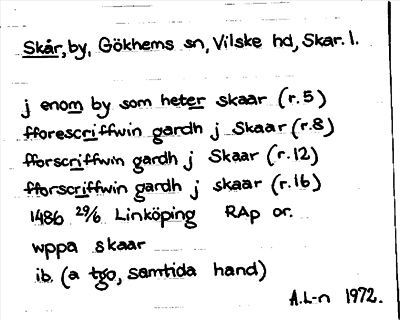 Skår, by, Gökhems sn, Vilske hd, Skar. l.
j enom by som heter skaar (r.5)
fforescriffwin gardh j Skaar (r.8)
fforscriffwin gardh j Skaar (r.12)
fforscriffwin gardh j skaar (r.16)
1486 29/6 Linköping RAp or.
wppa skaar
ib. (a tgo, samtida hand)
A.L-n 1972.